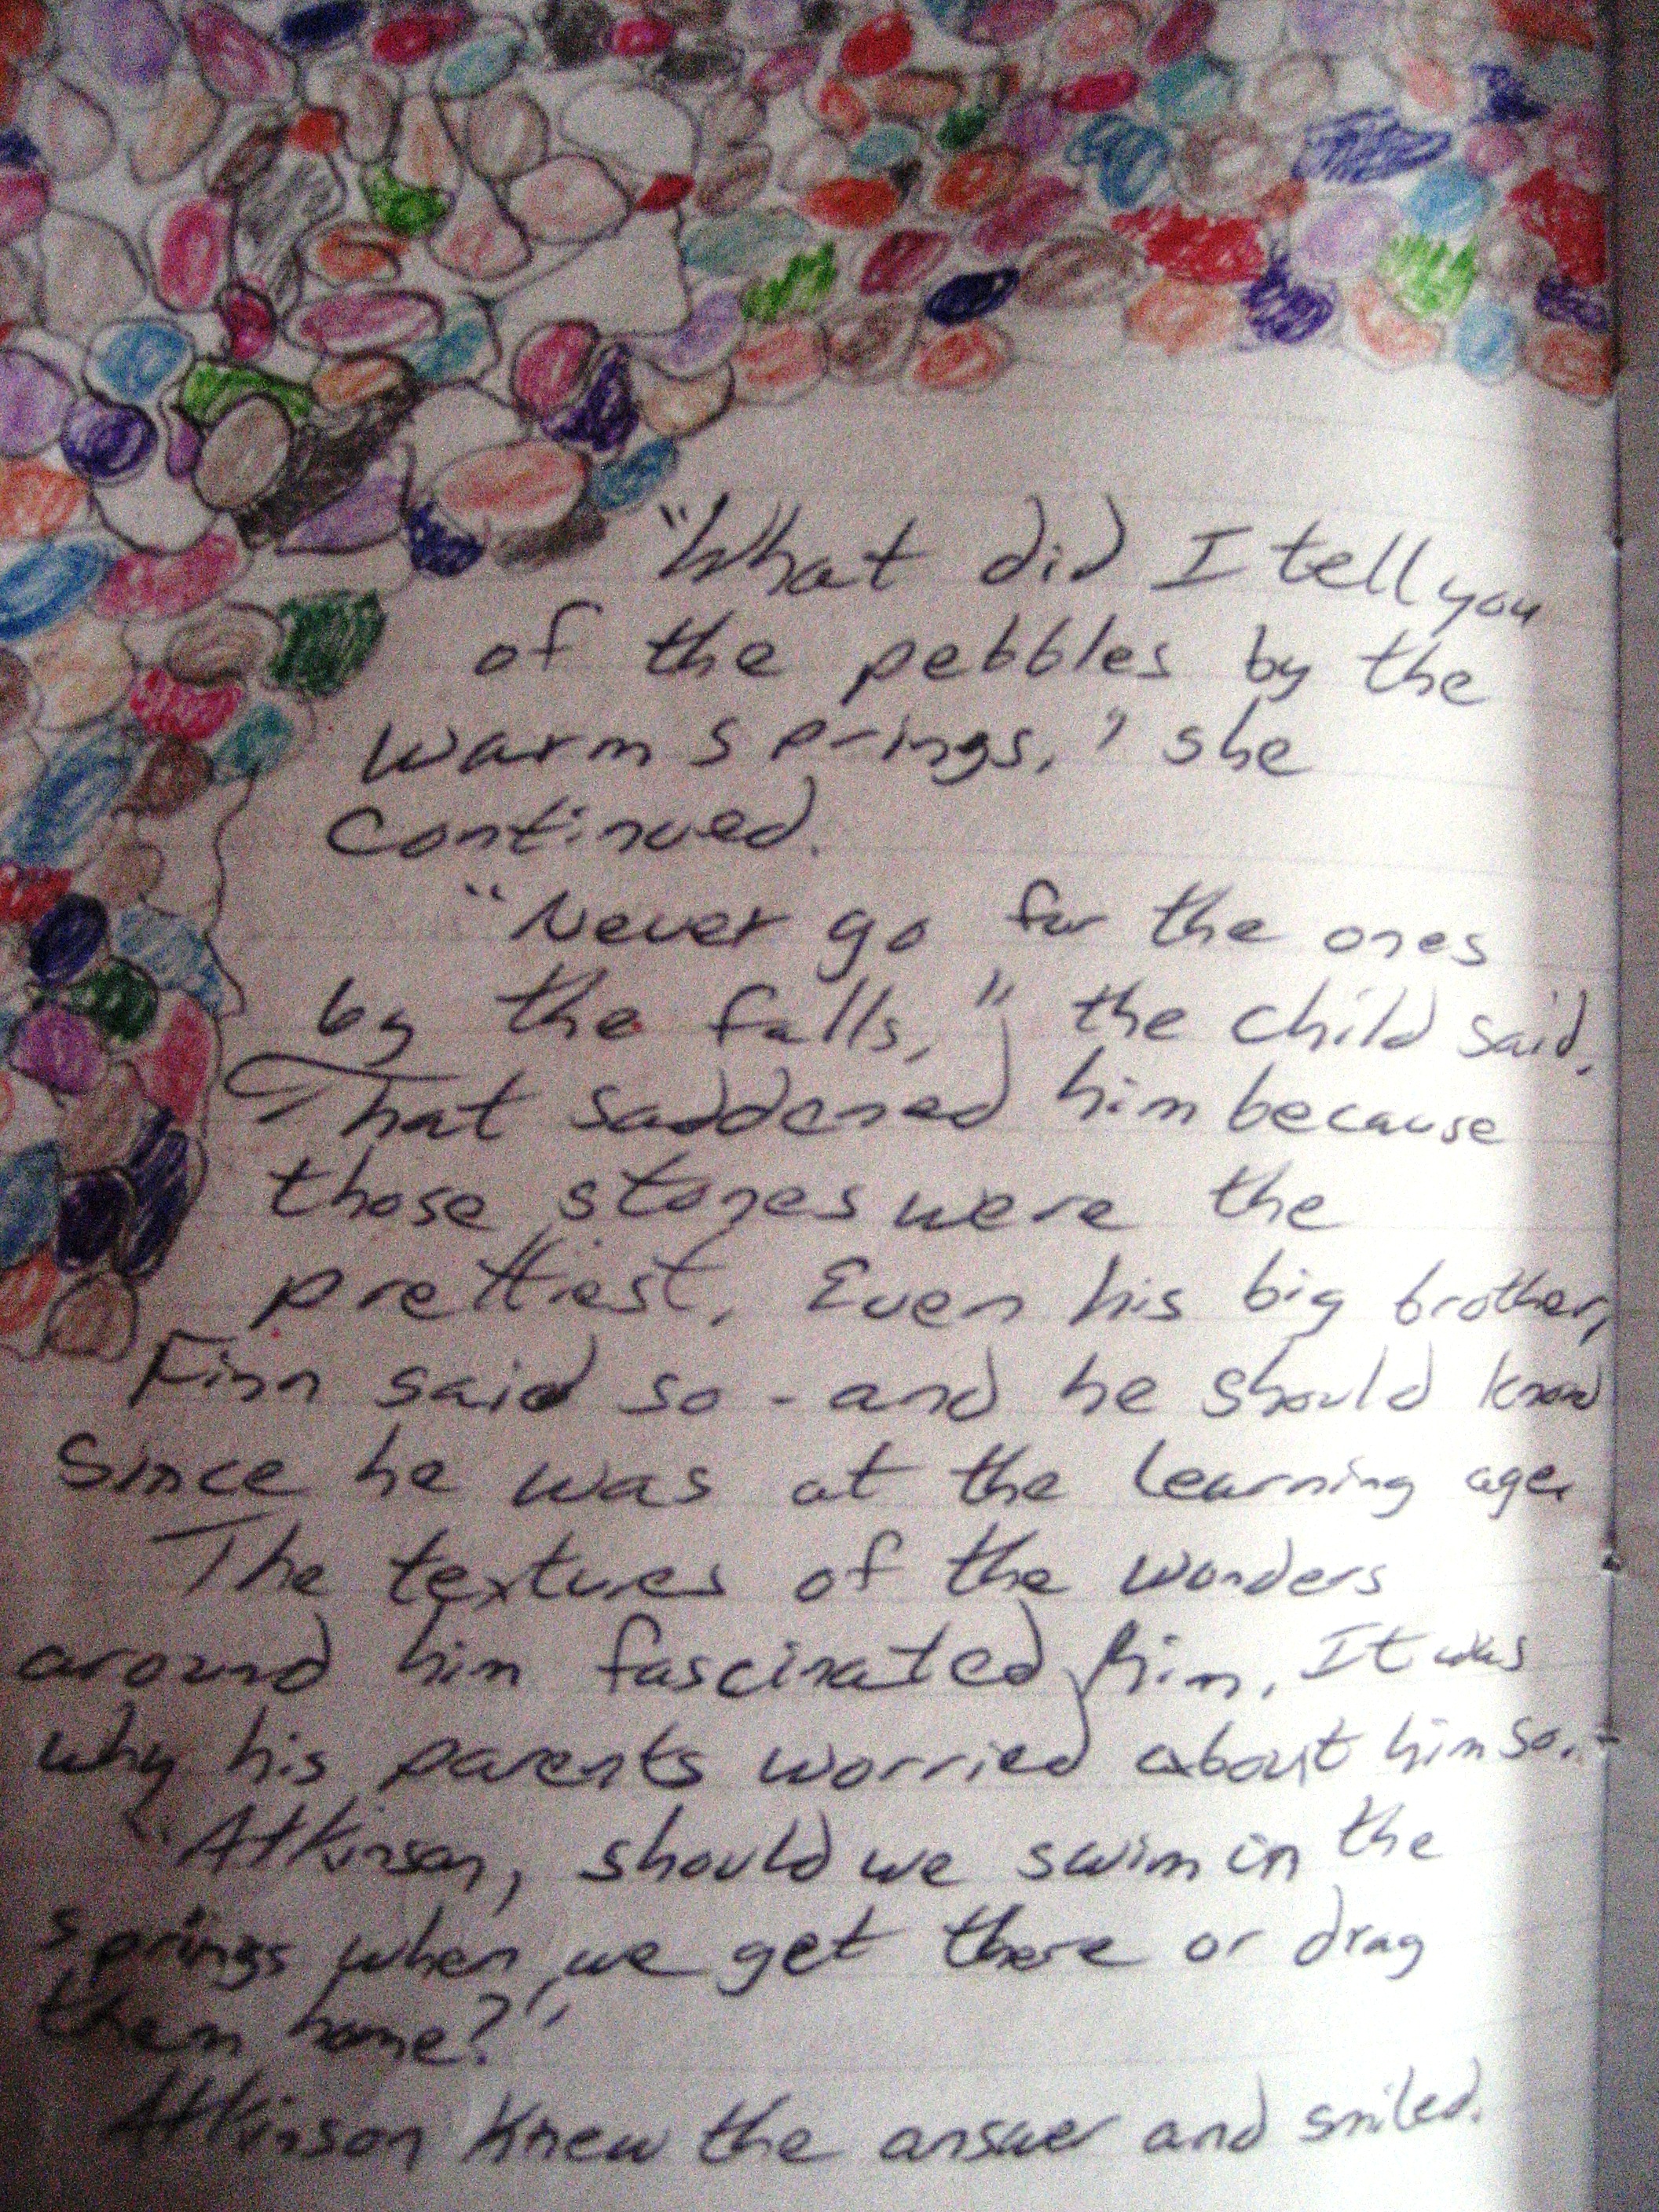 "What did I tell you
of the pebbles by the
warm springs," she
continued.
"Never go for the ones
by the falls," the child said.
That saddened him because
those stones were the
prettiest. Even his big brother,
Finn said so - and he should know
since he was at the learning age.
The textures of the wonders
around him fascinated him. It was
why his parents worried about him so.
"Atkinson, should we swim in the
springs when we get there or drag
them home?"
Atkinson knew the answer and smiled.